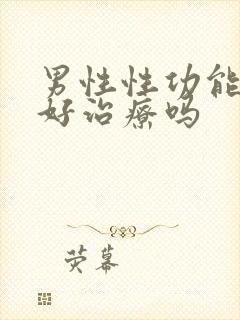 男性性功能
好治疗吗
荧幕